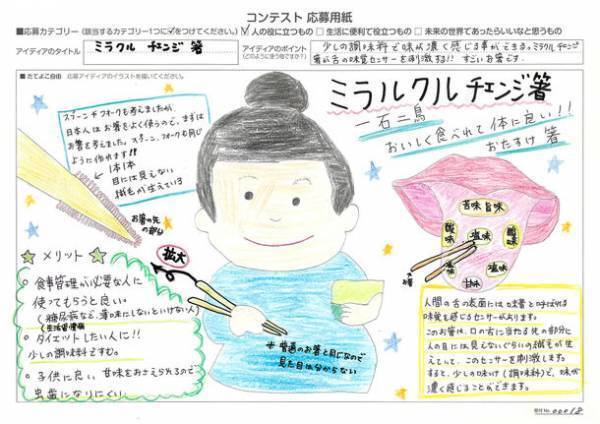 コンテスト 応募用紙
■応募カテゴリー(該当するカテゴリー1つに✓をつけてください。) ☑人の役に立つもの □生活に便利で役立つもの □未来の世界であったらいいなと思うもの
アイディアのタイトル
ミラクル チェンジ 箸
アイディアのポイント
(どのように使う物ですか?)
少しの調味料で味が濃く感じる事ができる。ミラクルチェンジ
箸が舌の味覚センサーを刺激する!! すごいお箸です。
■たてよこ自由 応募アイディアのイラストを描いてください。
スプーンやフォークも考えましたが、
日本人はお箸をよく使うので、まずは
お箸を考えました。スプーン、フォークも同じ
ように作れます!!
1本1本
目には見えない
繊毛が生えている
お箸の先
の部分
拡大
ミラルクルチェンジ箸
一石二鳥
おいしく食べれて体に良い!!
おたすけ 箸
苦味 旨味
酸味
塩味
酸味
塩味
塩味
甘味
メリット
・食事管理が必要な人に
使ってもらうと良い。
(糖尿病など、薄味にしないといけない人)
生活習慣病
・ダイエットしたい人に!!
少しの調味料ですむ。
・子供に良い、甘味をおさえられるので
虫歯になりにくい。
*普通のお箸と同じなので
見た目は分からない
人間の舌の表面には味蕾と呼ばれる
味覚を感じるセンサーがあります。
このお箸は、口の舌に当たる先の部分に
人の目には見えないぐらいの繊毛が生
えていて、このセンサーを刺激します。
すると、少しの味つけ(調味料)で、味が
濃く感じることができます。
受付No. 00018